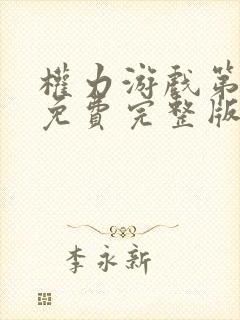 權力游戲第
免費完整版
李永新